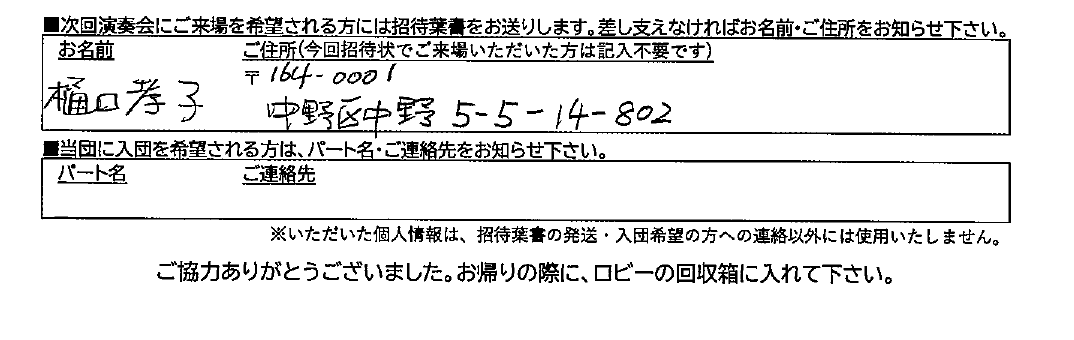 ■次回演奏会にご来場を希望される方には招待葉書をお送りします。差し支えなければお名前・ご住所をお知らせ下さい。
お名前 ご住所(今回招待状でご来場いただいた方は記入不要です)
〒164-0001
樋口孝子 中野区中野 5-5-14-802
■当団に入団を希望される方は、パート名・ご連絡先をお知らせ下さい。
パート名 ご連絡先
※いただいた個人情報は、招待葉書の発送・入団希望の方への連絡以外には使用いたしません。
ご協力ありがとうございました。お帰りの際に、ロビーの回収箱に入れて下さい。